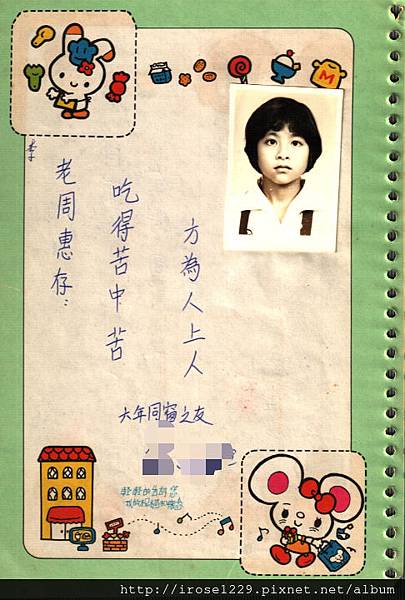 老周惠存：
吃得苦中苦
方為人上人
六年同窗之友
輕輕的告訴您
我的祝福
M
http://irose1229.pixnet.net/album